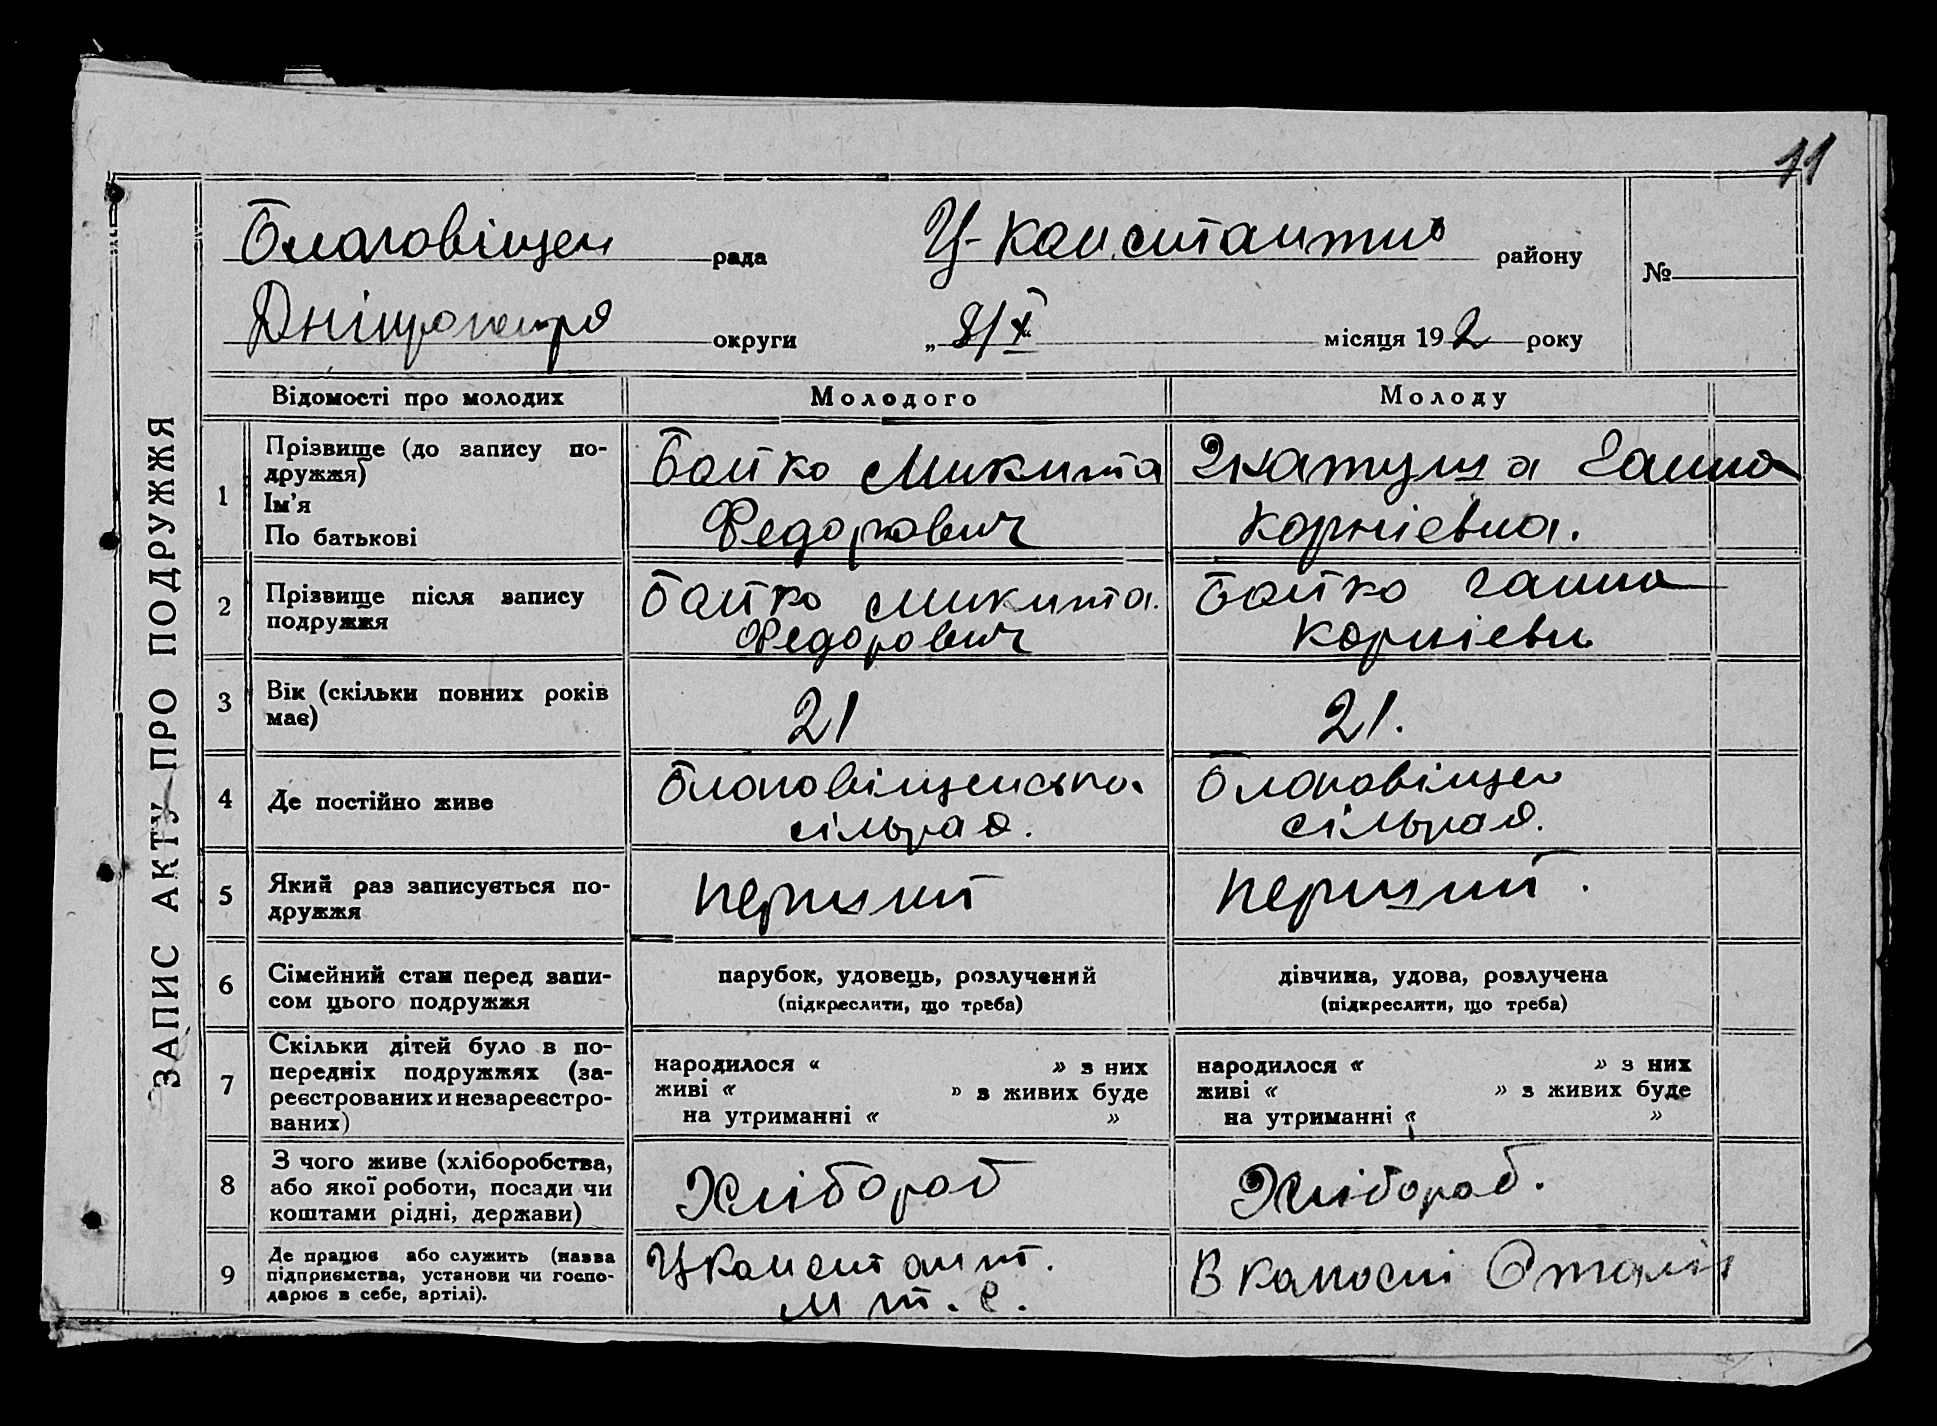 11
Благовіщен рада Ц-Константин району №
Дніпропетро округи „ 8/X місяця 192 року
ЗАПИС АКТУ ПРО ПОДРУЖЖЯ
Відомості про молодих Молодого Молоду
1 Прізвище (до запису по-
дружжя)
Ім'я
По батькові
Бойко Микита
Федорович
Ганна
Корнієвна.
2 Прізвище після запису
подружжя
Бойко Микита.
Федорович
Бойко Ганна
Корнієвн
3 Вік (скільки повних років
має)
21
21.
4 Де постійно живе
Благовіщенська
сільрад.
Благовіщен
сільрад.
5 Який раз записується по-
дружжя
перший
перший.
6 Сімейний стан перед запи-
сом цього подружжя
парубок, удовець, розлучений
(підкреслити, що треба)
дівчина, удова, розлучена
(підкреслити, що треба)
7 Скільки дітей було в по-
передніх подружжях (за-
реєстрованих и незареєстро-
ваних)
народилося « » з них
живі « » з живих буде
на утриманні « »
народилося « » з них
живі « » з живих буде
на утриманні « »
8 З чого живе (хліборобства,
або якої роботи, посади чи
коштами рідні, держави)
Хлібороб
Хлібороб.
9 Де працює або служить (назва
підприємства, установи чи госпо-
дарює в себе, артілі).
Цконстант.
м т. с.
В колгоспі Сталін